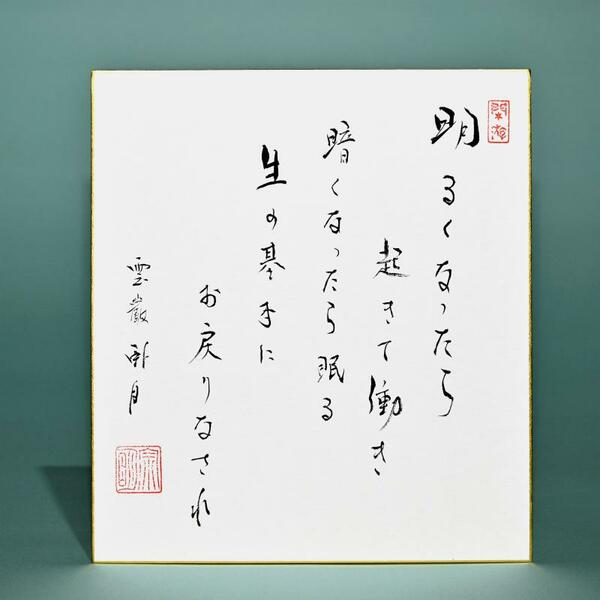 明るくなったら
起きて働き
暗くなったら眠る
生の基本に
お戻りなされ
雲巌
月